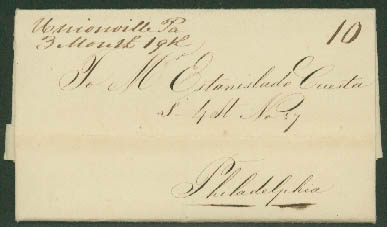 Unionville Pa
3 Month 19th
10
To Mr Estanislado Cuesta
S 4 St No
Philadelphia